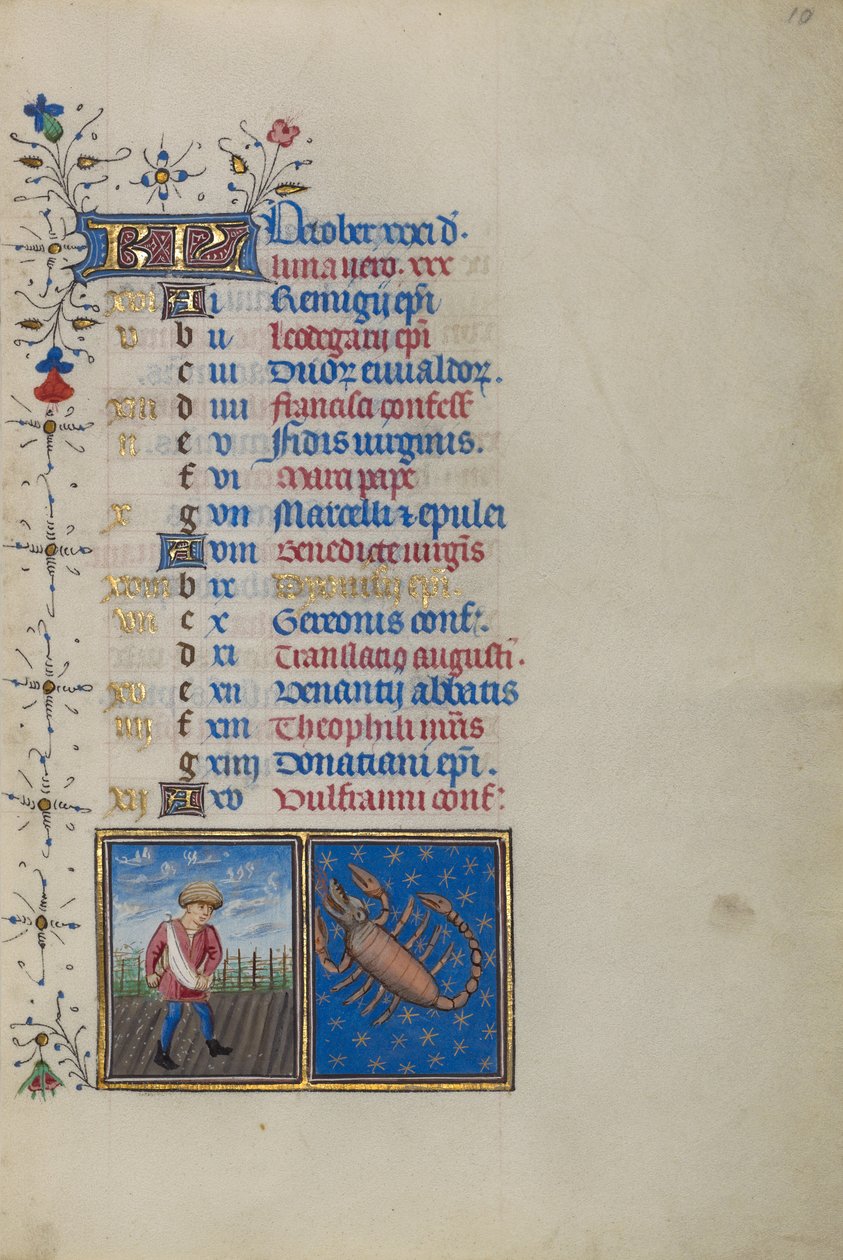 10
KL October xxxi d.
luna uero. xxx
xvi A i Remigij epi
v b ii Leodegarij epi
c iii Duoꝝ euualdoꝝ.
xiii d iiii Francisci confess
ii e v Fidis uirginis.
f vi Marci pape
x g vii Marcelli & epulei
A viii Benedicte uirgis
xviii b ix Dyonisij epi.
vii c x Gereonis conf.
d xi Translacio augusti.
xv e xii Venantij abbatis
iiii f xiii Theophili mris
g xiiii Donatiani epi.
xij A xv Vulfranni conf: